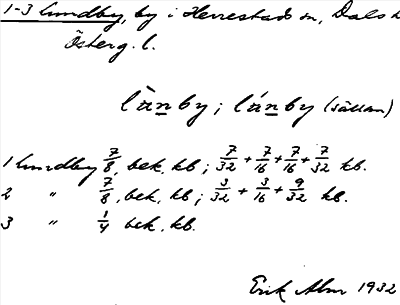 1-3 Lundby, by i Herrestads sn, Dals h
Österg. l.
la̠nby; lánby (sällan)
1 Lundby 7/8, bek. kb; 7/32 + 7/16 + 7/16 + 7/32 kb.
2 " 7/8, bek. kb; 3/32 + 3/16 + 9/32 kb.
3 " 1/4 bek. kb.
Erik Alm 1932